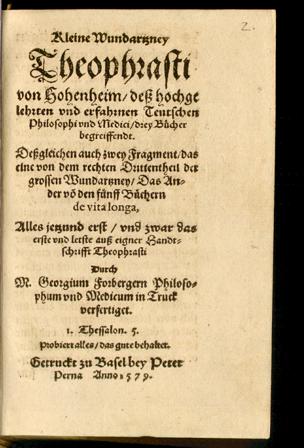 2.
Kleine Wundartzney
Theophrasti
von Hohenheim/deß hochge
lehrten vnd erfahrnen Teutschen
Philosophi vnd Medici/drey Bücher
begreiffendt.
Deßgleichen auch zwey Fragment/das
eine von dem rechten Drittentheil der
grossen Wundartzney/Das An-
der võ den fünff Büchern
de vita longa,
Alles jetzund erst/vnd zwar das
erste vnd letste auß eigner Handt-
schrifft Theophrasti
Durch
M. Georgium Forbergern Philoso-
phum vnd Medicum in Truck
verfertiget.
1. Thessalon. 5.
Probiert alles/das gute behaltet.
Getruckt zu Basel bey Peter
Perna Anno 1579.